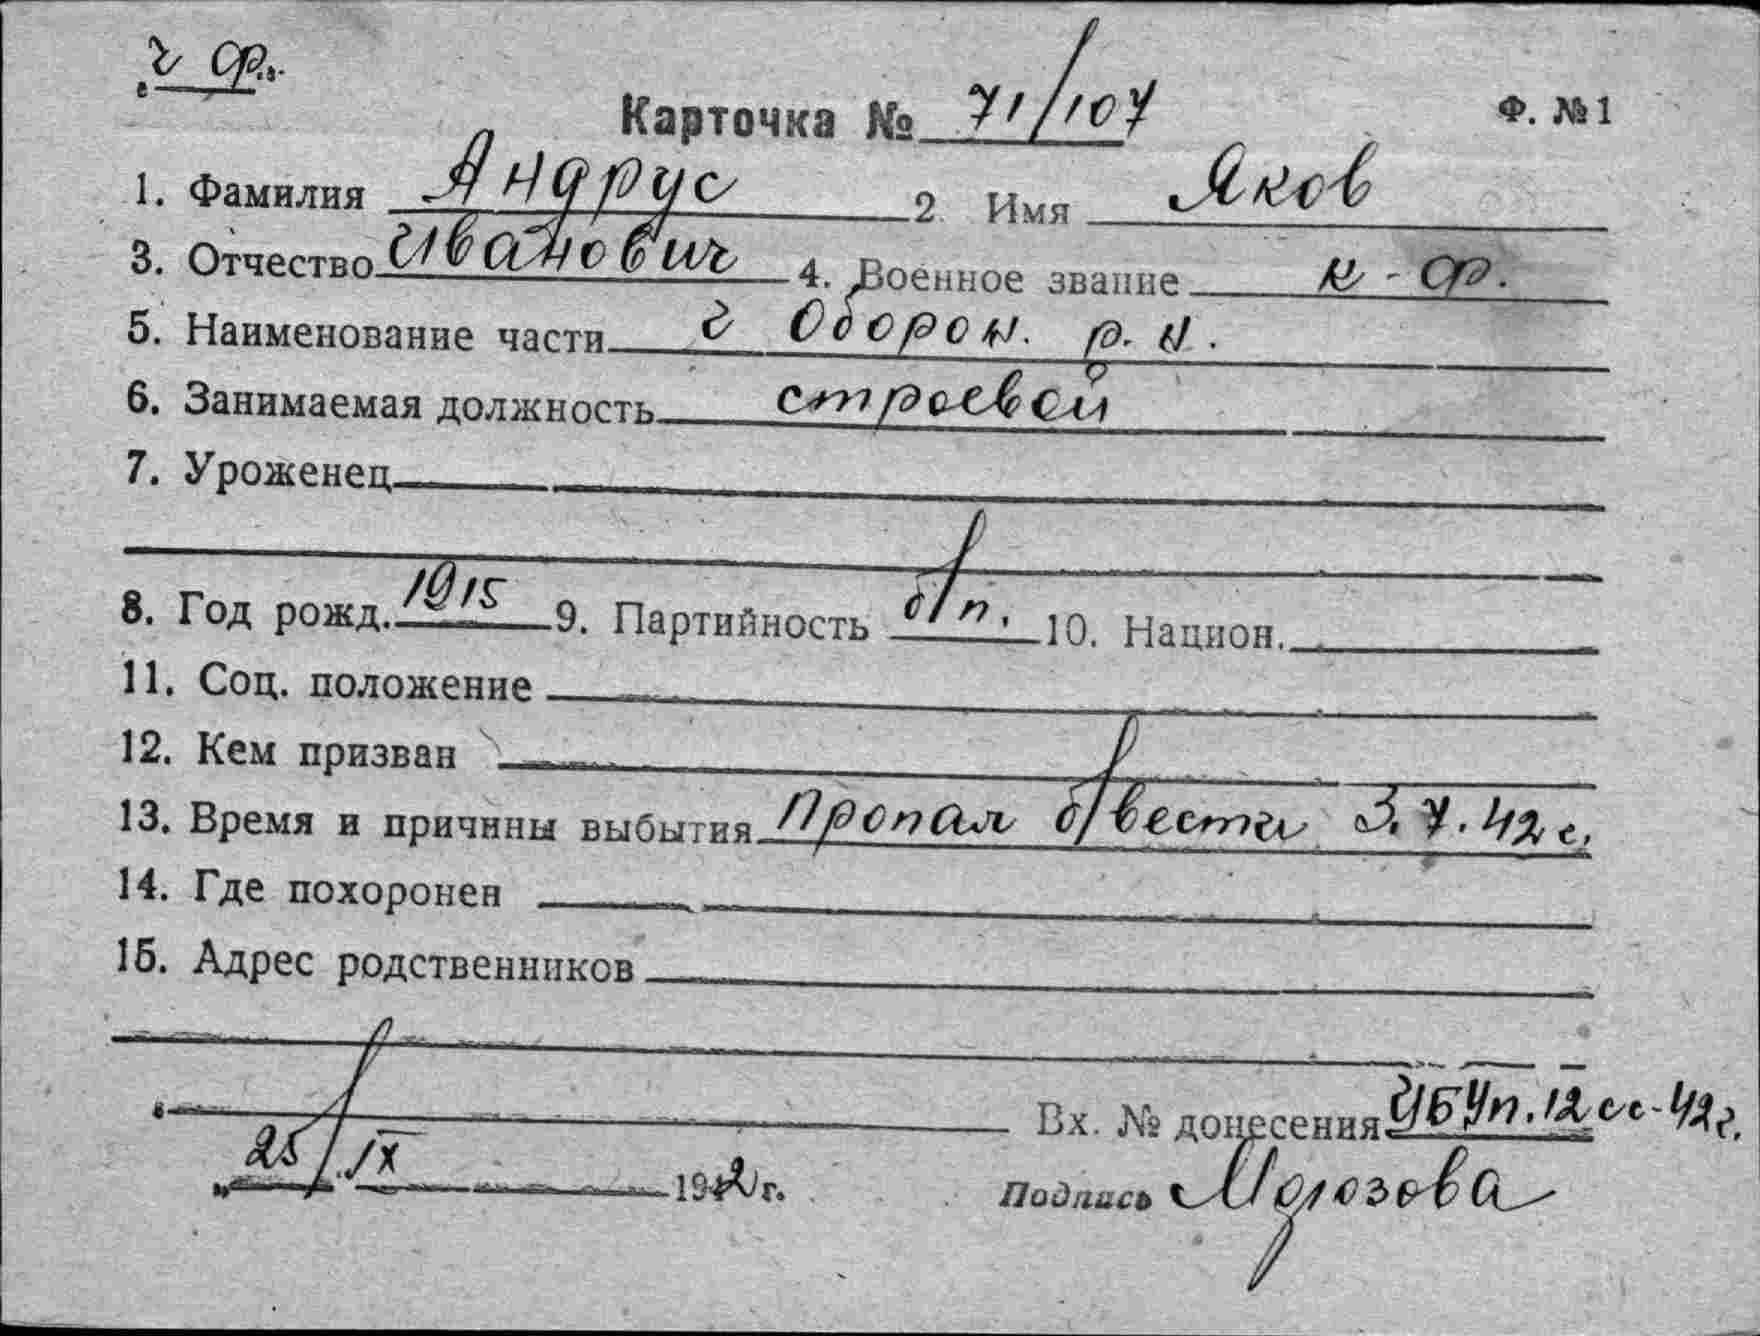 ч ф.
Карточка № 71/107 Ф. №1
1. Фамилия Андрус 2. Имя Яков
3. Отчество Иванович 4. Военное звание к-ф.
5. Наименование части г Оборон. р.н.
6. Занимаемая должность строевой
7. Уроженец
8. Год рожд. 1915 9. Партийность б/п. 10. Национ.
11. Соц. положение
12. Кем призван
13. Время и причины выбытия Пропал б/вести 3.7.42 г.
14. Где похоронен
15. Адрес родственников
Вх. № донесения УПп.12сс-42г.
„25/IX 1942 г. Подпись Морозова